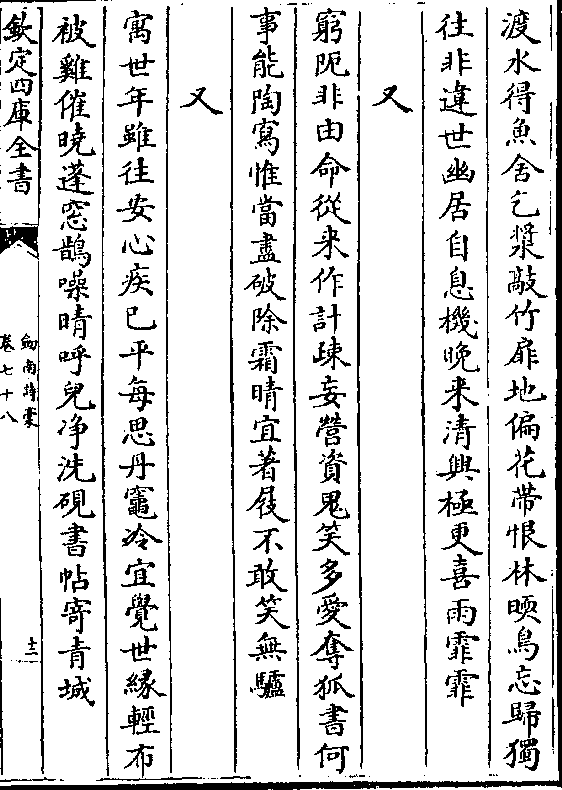 渡水得魚舍乞漿敲竹扉地偏花帶恨林暝鳥忘歸獨
往非違世幽居自息機晚来清興極更喜雨霏霏
又
窮阨非由命從来作計疎妄營資鬼笑多愛奪狐書何
事能陶寫惟當盡破除霜晴宜著屐不敢笑無驢
又
寓世年雖往安心疾已平每思丹竈冷宜覺世緣輕布
被雞催曉蓬窓鵲噪晴呼兒净洗硯書帖寄青城
欽定四庫全書
劒南詩稾
卷七十八
十二